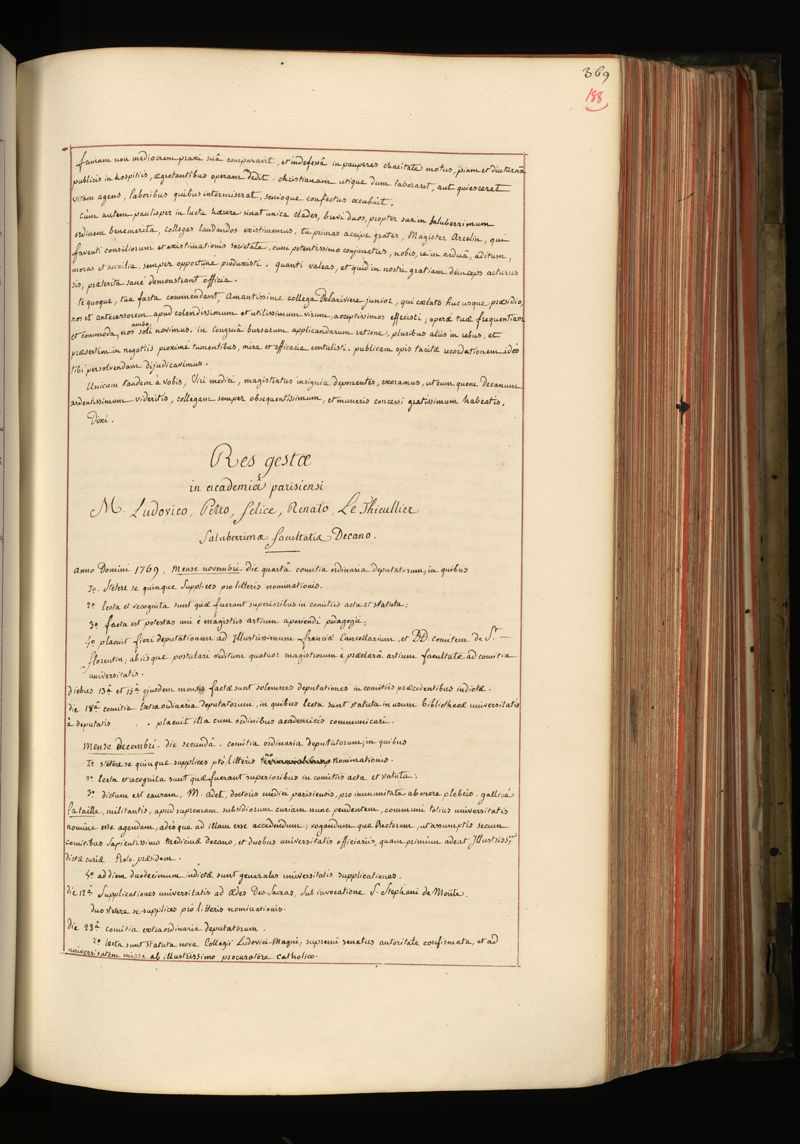 369
188
famam non mediocrem praxi suâ comparavit, et indefessâ in pauperes charitate motus, piam et diuturnā
publicis in hospitiis, ægrotantibus operam dedit. christianam utique dum laboraret, aut quiesceret
vitam agens, laboribus quibus intermiserat, senioque confectus occubuit.
Cùm autem paulisper in luctu hærere sinat unica clades, brevi duos, propter sua in saluberrimum
ordinem benemerita, collegas laudandos existimemus. tu primas accipe grates, Magister Arcelin, qui
faventi consiliorum et existimationis societate, cum potentissimo conjunctus, nobis, re in arduâ, aditum,
moras et auxilia, semper opportune produxisti. quanti valeas, et quid in nostri gratiam deinceps acturus
sis, præterita sanè demonstrant officia.
te quoque, tua facta commendant, Amantissime collega Delariviere junior, qui cælato hucusque præsidio,
nos et antecessorem apud colendissimum et utilissimum virum, acceptissimos effecisti, operæ tuæ frequentiam
et commoda, nos ambo soli novimus. in congruâ bursarum applicandarum ratione, pluribus aliis in rebus, et
præsertim in negotiis proximè tumentibus, mira et efficacia contulisti. publicam opis tacitæ recordationem ideò
tibi persolvendam dijudicavimus.
Unicum tandem à vobis, Viri medici, magistratus insignia deponentes, exoramus, ut eum quem Decanum
ardentissimum videritis, collegam semper obsequentissimum, et muneris concessi gratissimum habeatis.
Dixi.
Res gestæ
in academiâ parisiensi
M. Ludovico, Petro, Felice, Renato, Le Thieullier
Saluberrimæ facultatis Decano.
Anno Domini 1769, Mense novembri. die quartâ comitia ordinaria deputatorum, in quibus
1o. Stetere se quinque supplices pro litteris nominationis.
2o. lecta et recognita sunt quæ fuerant superioribus in comitiis acta et statuta;
3o. facta est potestas uni è magistis artium aperiendi pedagogii;
4o. placuit fieri deputationem ad Illustrissimum franciæ Cancellarium, et DD comitem de St. —
florentin, abiisque postulari reditum quatuor magistrorum è præclarâ artium facultate ad comitia
universitatis.
diebus 13â et 15â ejusdem mensis factæ sunt solemnes deputationes in comitiis præcedentibus indictæ.
die 18â comitia Extraordinaria deputatorum, in quibus lecta sunt statuta in usum bibliothecæ universitatis
à deputatis . placuit illa cum ordinibus academicis communicari.
Mense Decembri. die secundâ. comitia ordinaria deputatorum, in quibus
1o. stetere se quinque supplices pro litteris nominationis.
2o. lecta et recognita sunt quæ fuerant superioribus in comitiis acta et statuta;
3o. dictum est causam, M. adet, doctoris medici parisiensis, pro immunitate ab onere plebeio. gallicè
la taille, militantis, apud supremam subsidiorum curiam nunc pendentem, communi totius universitatis
nomine esse agendam, adeoque ad illam esse accedendum; rogandum que Rectorem, ut assumptis secum
comitibus Sapientissimo Medicinæ Decano, et duobus universitatis officiariis, quam primùm adeat Illustriss.m
dictæ curiæ Proto.præsidem.
4o. ad diem duodecimum indictæ sunt generales universitatis supplicationes.
die 12â Supplicationes universitatis ad ædes Deo Sacras, sub invocatione S. Stephani de Monte.
duo stetere se supplices pro litteris nominationis.
die 23â comitia extraordinaria deputatorum.
1o. lecta sunt statuta nova Collegii Ludovici-Magni, supremi senatus autoritate confirmata, et ad
universitatem missa ab illustrissimo procuratore catholico.